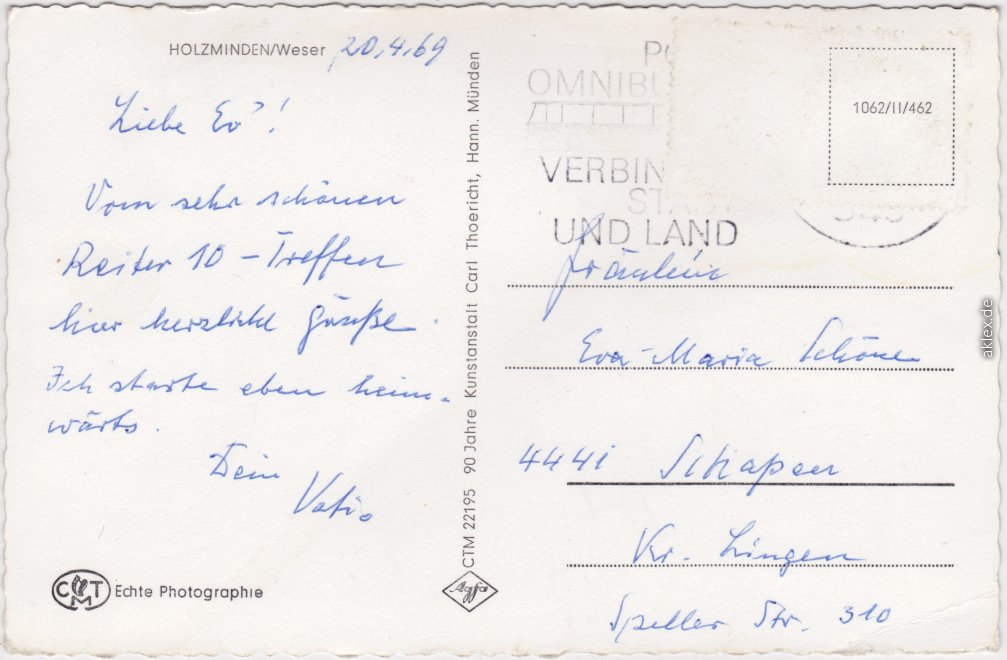 HOLZMINDEN/Weser 20.4.69
Liebe Ev'!
Vom sehr schönen
Reiter 10 - Treffen
hier herzliche Grüße.
Ich starte eben heim-
wärts.
Dein
Vati.
CMT Echte Photographie
CTM 22195 90 Jahre Kunstanstalt Carl Thoericht, Hann. Münden
Agfa
OMNIBU
VERBIN
ST
UND LAND
1062/II/462
Fräulein
Eva-Maria Schöne
4441 Schapen
Kr. Lingen
Speller Str. 310
aklex.de